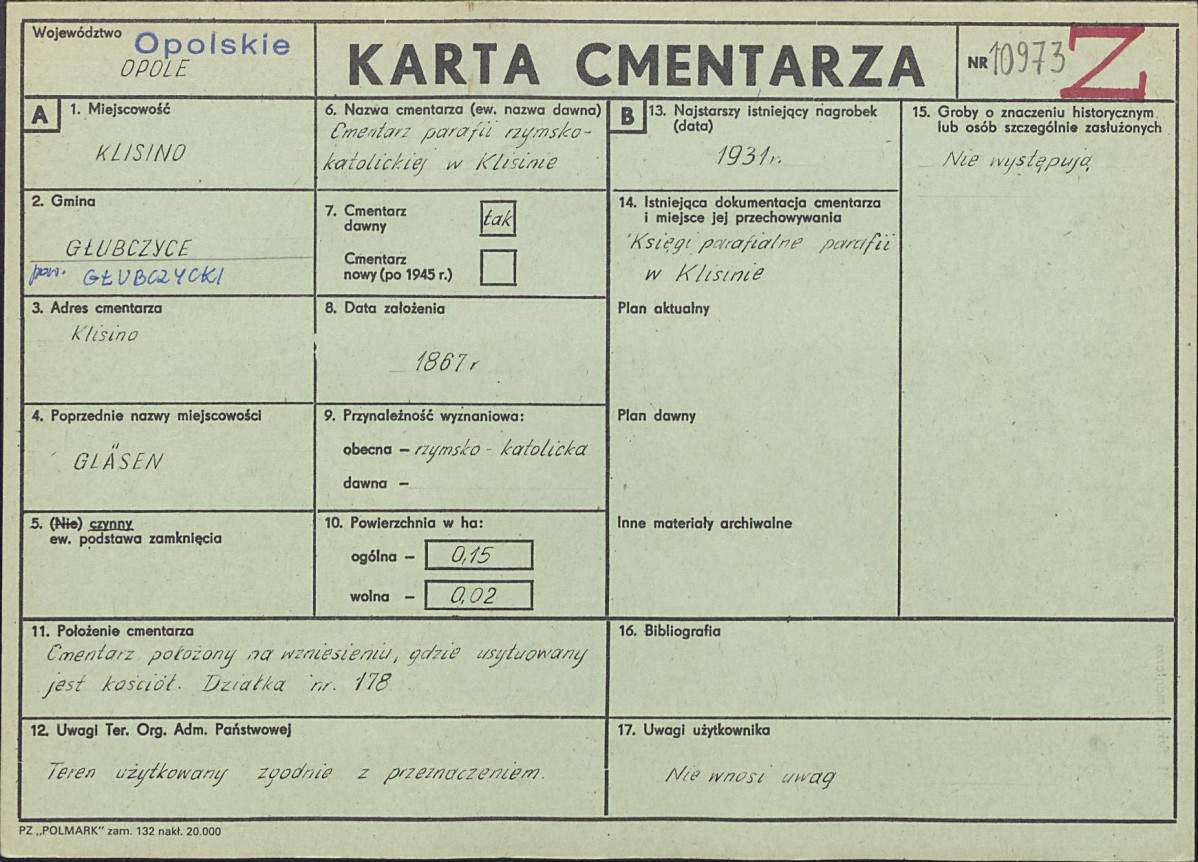 Województwo Opolskie
OPOLE
KARTA CMENTARZA
NR 10973 Z
A
1. Miejscowość
KLISINO
2. Gmina
GŁUBCZYCE
pow. GŁUBCZYCKI
3. Adres cmentarza
Klisino
4. Poprzednie nazwy miejscowości
GLÄSEN
5. (Nie) czynny
ew. podstawa zamknięcia
6. Nazwa cmentarza (ew. nazwa dawna)
Cmentarz parafii rzymsko-
katolickiej w Klisinie
7. Cmentarz
dawny
tak
Cmentarz
nowy (po 1945 r.)
8. Data założenia
1867 r
9. Przynależność wyznaniowa:
obecna – rzymsko - katolicka
dawna –
10. Powierzchnia w ha:
ogólna – 0,15
wolna – 0,02
11. Położenie cmentarza
Cmentarz położony na wzniesieniu, gdzie usytuowany
jest kościół. Działka nr. 178
12. Uwagi Ter. Org. Adm. Państwowej
Teren użytkowany zgodnie z przeznaczeniem.
B
13. Najstarszy istniejący nagrobek
(data)
1931r.
14. Istniejąca dokumentacja cmentarza
i miejsce jej przechowywania
Księgi parafialne parafii
w Klisinie
Plan aktualny
Plan dawny
Inne materiały archiwalne
15. Groby o znaczeniu historycznym
lub osób szczególnie zasłużonych
Nie występują
16. Bibliografia
17. Uwagi użytkownika
Nie wnosi uwag
PZ „POLMARK" zam. 132 nakł. 20.000